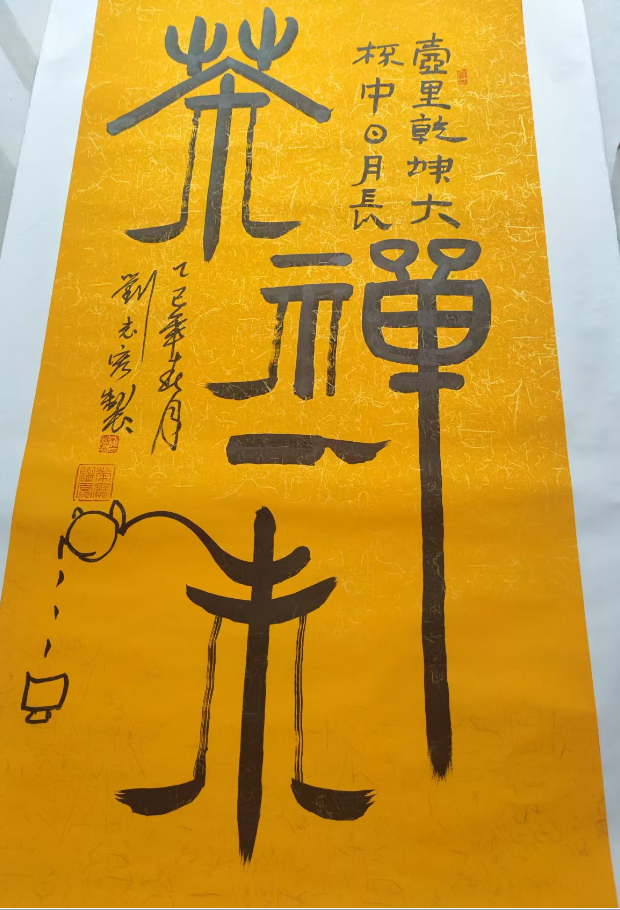 茶禪一味
壺里乾坤大
杯中日月長
乙巳年春月
劉志製